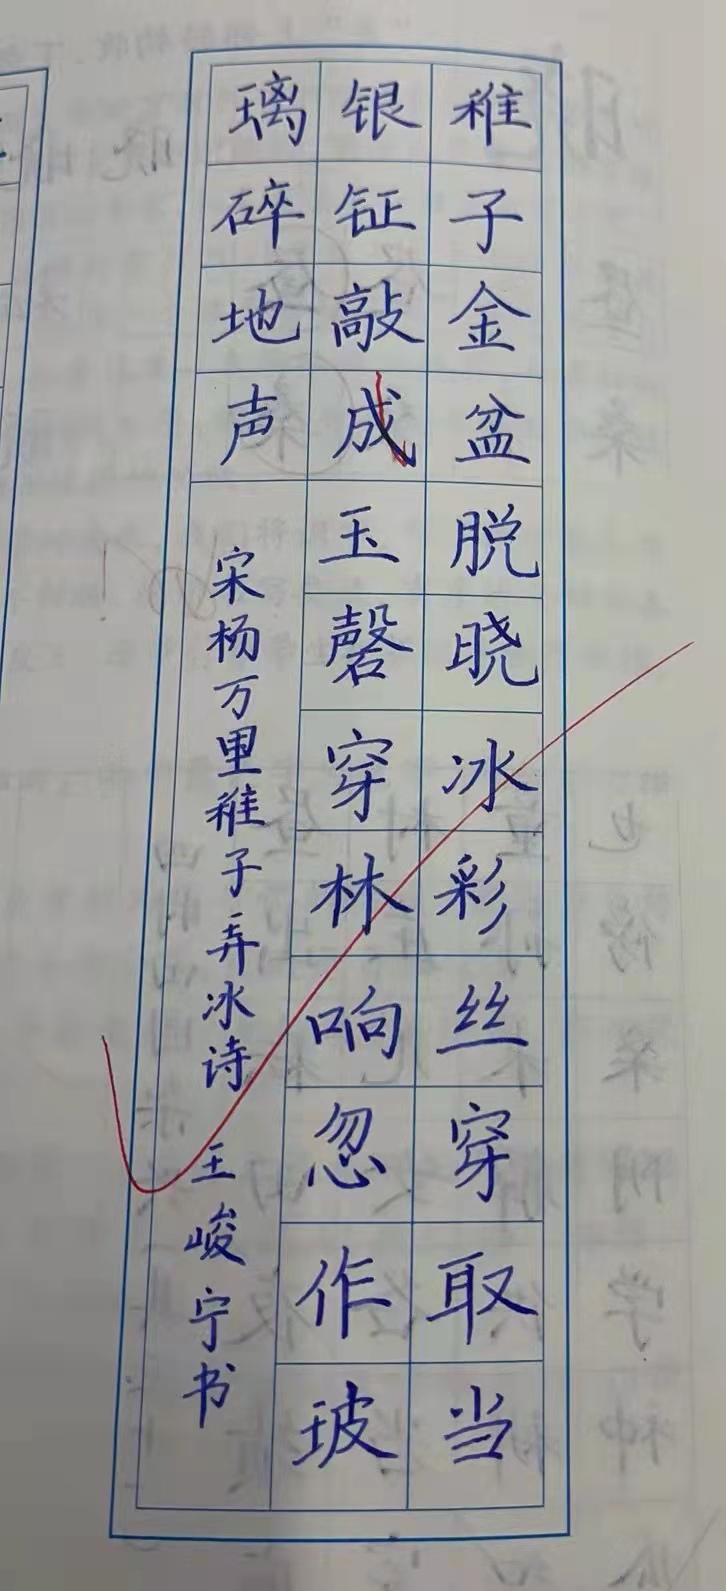 稚子金盆脱晓冰彩丝穿取当
银钲敲成玉磬穿林响忽作玻
璃碎地声
宋杨万里稚子弄冰诗 王峻宁书